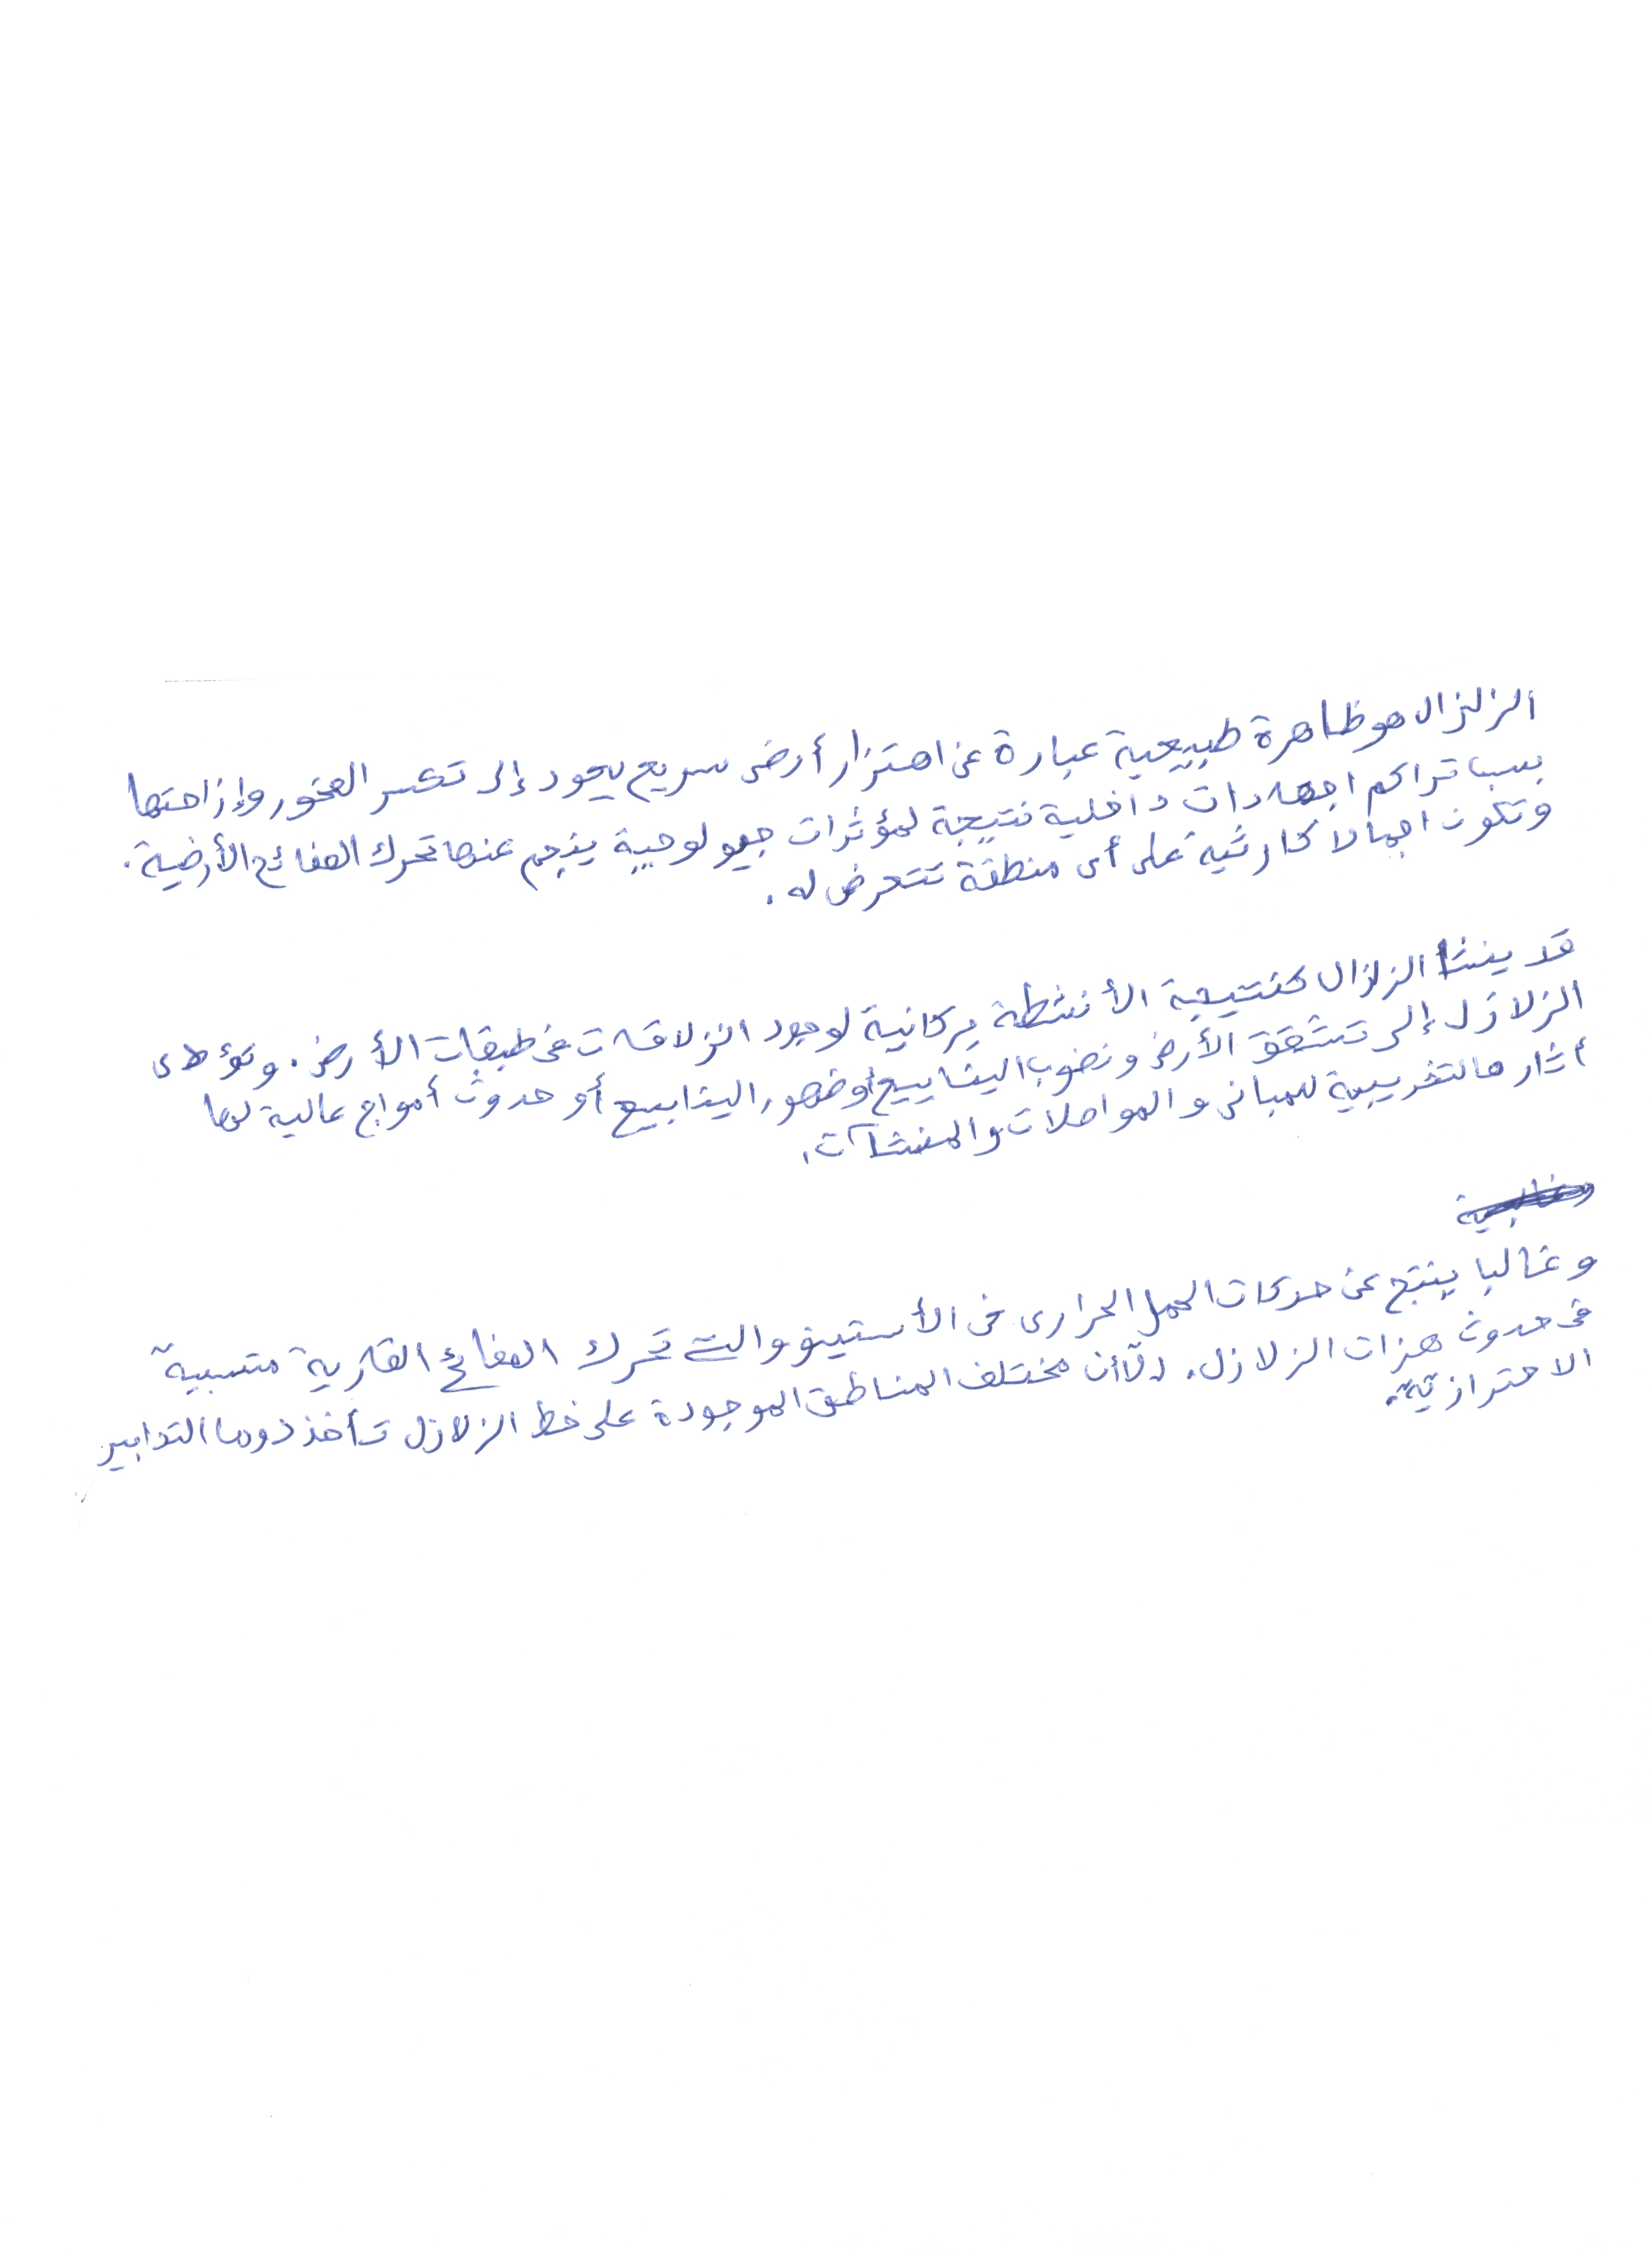 الزلزال هو ظاهرة طبيعية عبارة عن اهتزاز أرضى سريع يعود إلى تكسر الصخور وإزاحتها
بسبب تراكم اجهادات داخلية نتيجة لمؤثرات جيولوجية ينجم عنها تحرك الصفائح الأرضية.
وتكون اجمالا كارثية على أى منطقة تتعرض له.
قد ينشأ الزلزال كنتيجة الأنشطة بركانية لوجود انزلاقات فى طبقات الأرض. وتؤدى
الزلازل إلى تشقق الأرض ونضوب الينابيع أو ظهور الينابيع أو حدوث أمواج عالية لها
آثارها لتخريبية للمبانى والمواصلات والمنشآت.
وغالبا ينتج عن حركات الحمل الحرارى فى الأستينو والتى تحرك الصفائح القارية متسببة
فى حدوث هزات الزلازل. إلا أن مختلف المناطق الموجودة على خط الزلازل تأخذ دوما التدابير
الاحترازية.